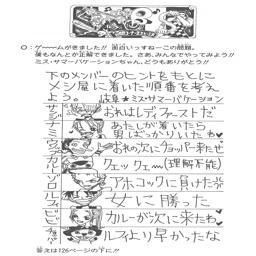 Q:ゲ〜〜〜ムができました!! 面白いっすねーこの問題。
僕もなんとか正解できました。さあ、みんなでやってみよう!!
ミス・サマーバケーションちゃん、どうもありがとう!!
下のメンバーのヒントをもとに
メシ屋に着いた順番を考え
よう。 岐阜★ミス・サマーバケーション
サンジ おれはレディファーストだ
ナミ あたしが着いたら男ばっかりいたわ
ウソップ おれの次にチョッパー来たぜ
カルー クエックェー(理解不能)
ゾロ アホコックに負けた
ルフィ 女に勝った
ビビ カルーが次に来たわ
チョッパー ルフィより早かったな
答えは126ページの下に!!